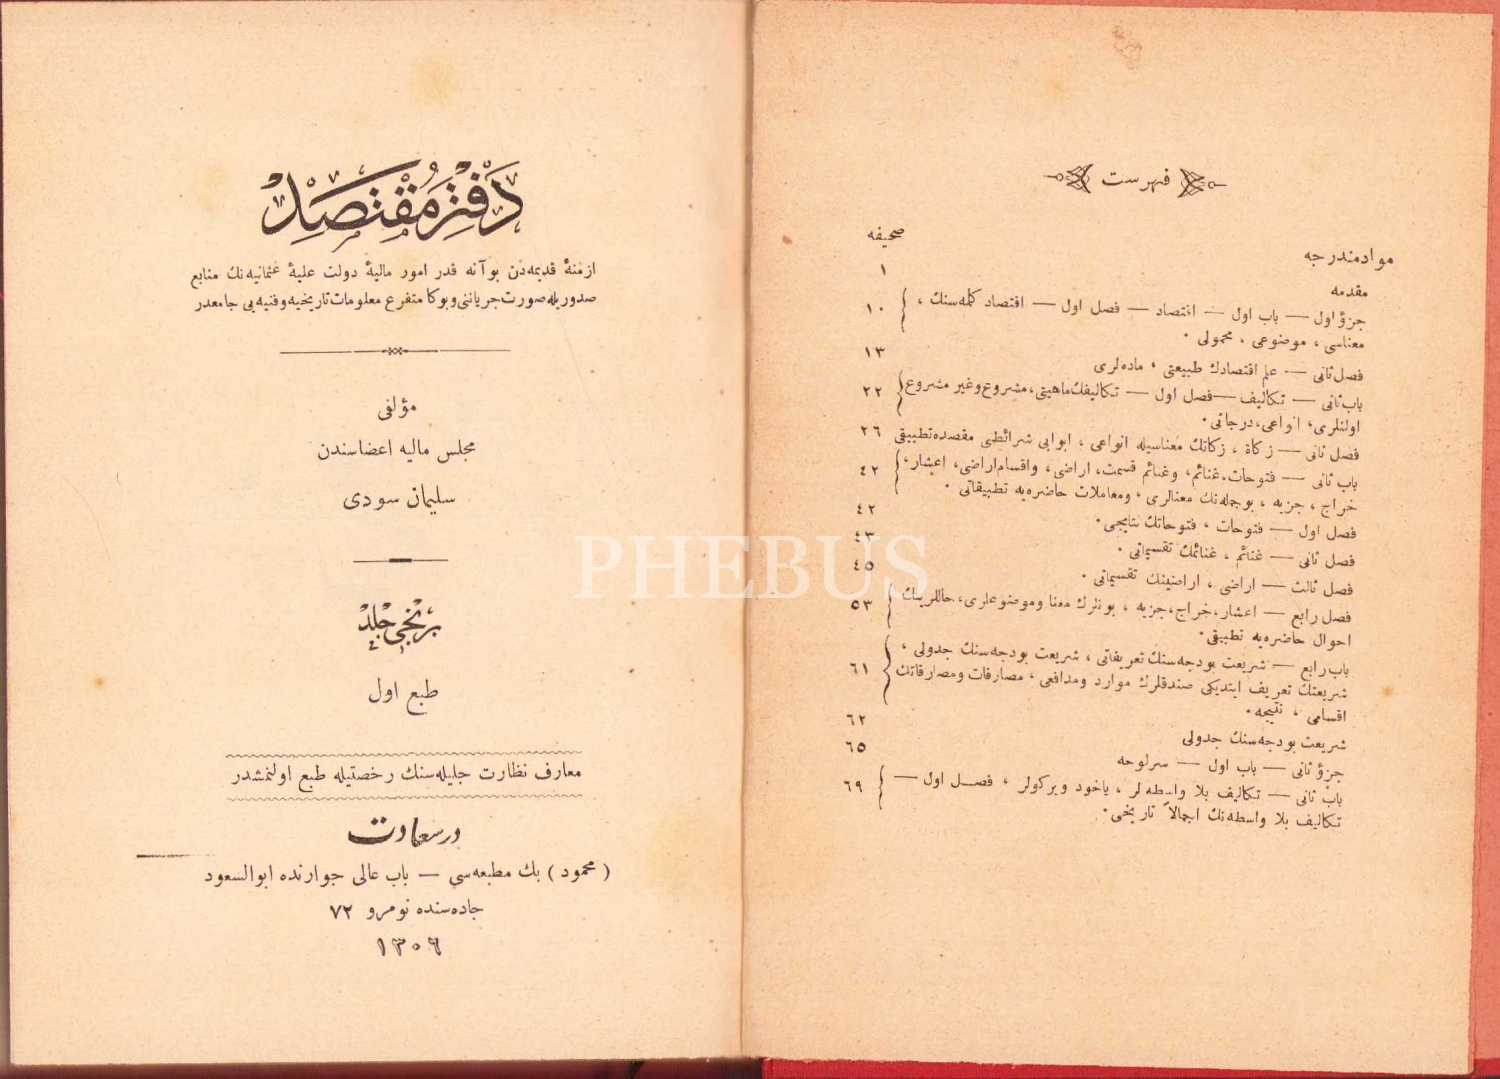 دَفْتَرِ مُقْتَصِدْ
ازمنهٔ قديمه‌دن بو آنه قدر امور ماليهٔ دولت عليهٔ عثمانيه‌نك منابع
صدوريله صورت جريانى و بوكا متفرع معلومات تاريخيه و فنيه‌يى جامعدر
مؤلفى
مجلس ماليه اعضاسندن
سليمان سودى
برنجى جلد
طبع اول
معارف نظارت جليله‌سنك رخصتيله طبع اولنمشدر
درسعادت
( محمود ) بك مطبعه‌سى — باب عالى جوارنده ابوالسعود
جاده‌سنده نومرو ٧٢
١٣٠٦
فهرست
صحيفه
مواد مندرجه
مقدمه ١
جزؤ اول — باب اول — اقتصاد — فصل اول — اقتصاد كلمه‌سنك ، ١٠
معناسى ، موضوعى ، محمولى .
فصل ثانى — علم اقتصادك طبيعتى ، ماده‌لرى ١٣
باب ثانى — تكاليف — فصل اول — تكاليفك ماهيتى، مشروع و غير مشروع ٢٢
اولنلرى، انواعى، درجاتى .
فصل ثانى — زكاة ، زكاتك معناسيله انواعى ، ابوابى شرائطى مقصده تطبيقى ٢٦
باب ثانى — فتوحات، غنائم، وغنائم قسمت، اراضى، واقسام اراضى، اعشار، ٤٢
خراج ، جزيه ، بوجمله‌نك معنالرى ، ومعاملات حاضره‌يه تطبيقاتى .
فصل اول — فتوحات ، فتوحاتك نتايجى . ٤٢
فصل ثانى — غنائم ، غنائمك تقسيماتى . ٤٣
فصل ثالث — اراضى ، اراضينك تقسيماتى . ٤٥
فصل رابع — اعشار، خراج، جزيه ، بونلرك معنا وموضوعلرى، حاللرينك ٥٣
احوال حاضره‌يه تطبيقى .
باب رابع — شريعت بودجه‌سنك تعريفاتى ، شريعت بودجه‌سنك جدولى ،
شريعتك تعريف ايتديكى صندقلرك موارد ومدافعى ، مصارفات ومصارفاتك ٦١
اقسامى ، نتيجه .
شريعت بودجه‌سنك جدولى ٦٢
جزؤ ثانى — باب اول — سرلوحه ٦٥
باب ثانى — تكاليف بلا واسطه‌لر ، ياخود ويركولر ، فصل اول — ٦٩
تكاليف بلا واسطه‌نك اجمالاً تاريخى .
PHEBUS